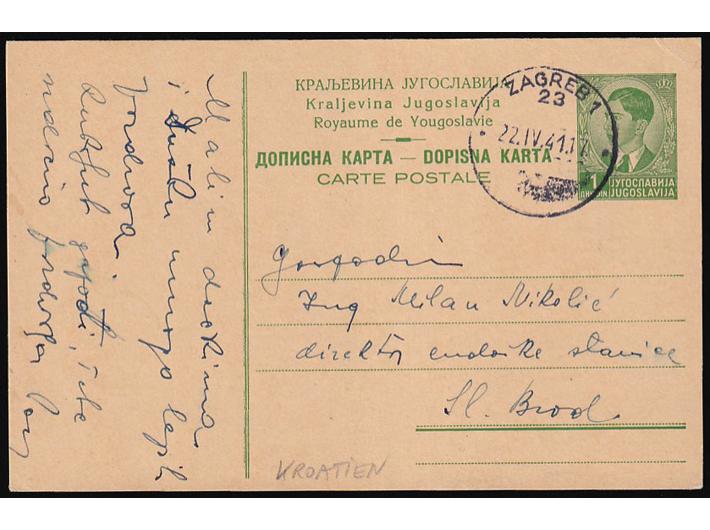 КРАЉЕВИНА ЈУГОСЛАВИЈА
Kraljevina Jugoslavija
Royaume de Yougoslavie
ДОПИСНА КАРТА — DOPISNA KARTA
CARTE POSTALE
ZAGREB 1
23
22.IV.41.17
1
ДИНАР DIN
ЈУГОСЛАВИЈА
JUGOSLAVIJA
Gospodin
Ing Milan Nikolić
direktor stanice
Sl. Brod
Malim dečkima
i mnogo lepih
pozdrava.
gospodji, Tebe
pozdravlja
KROATIEN